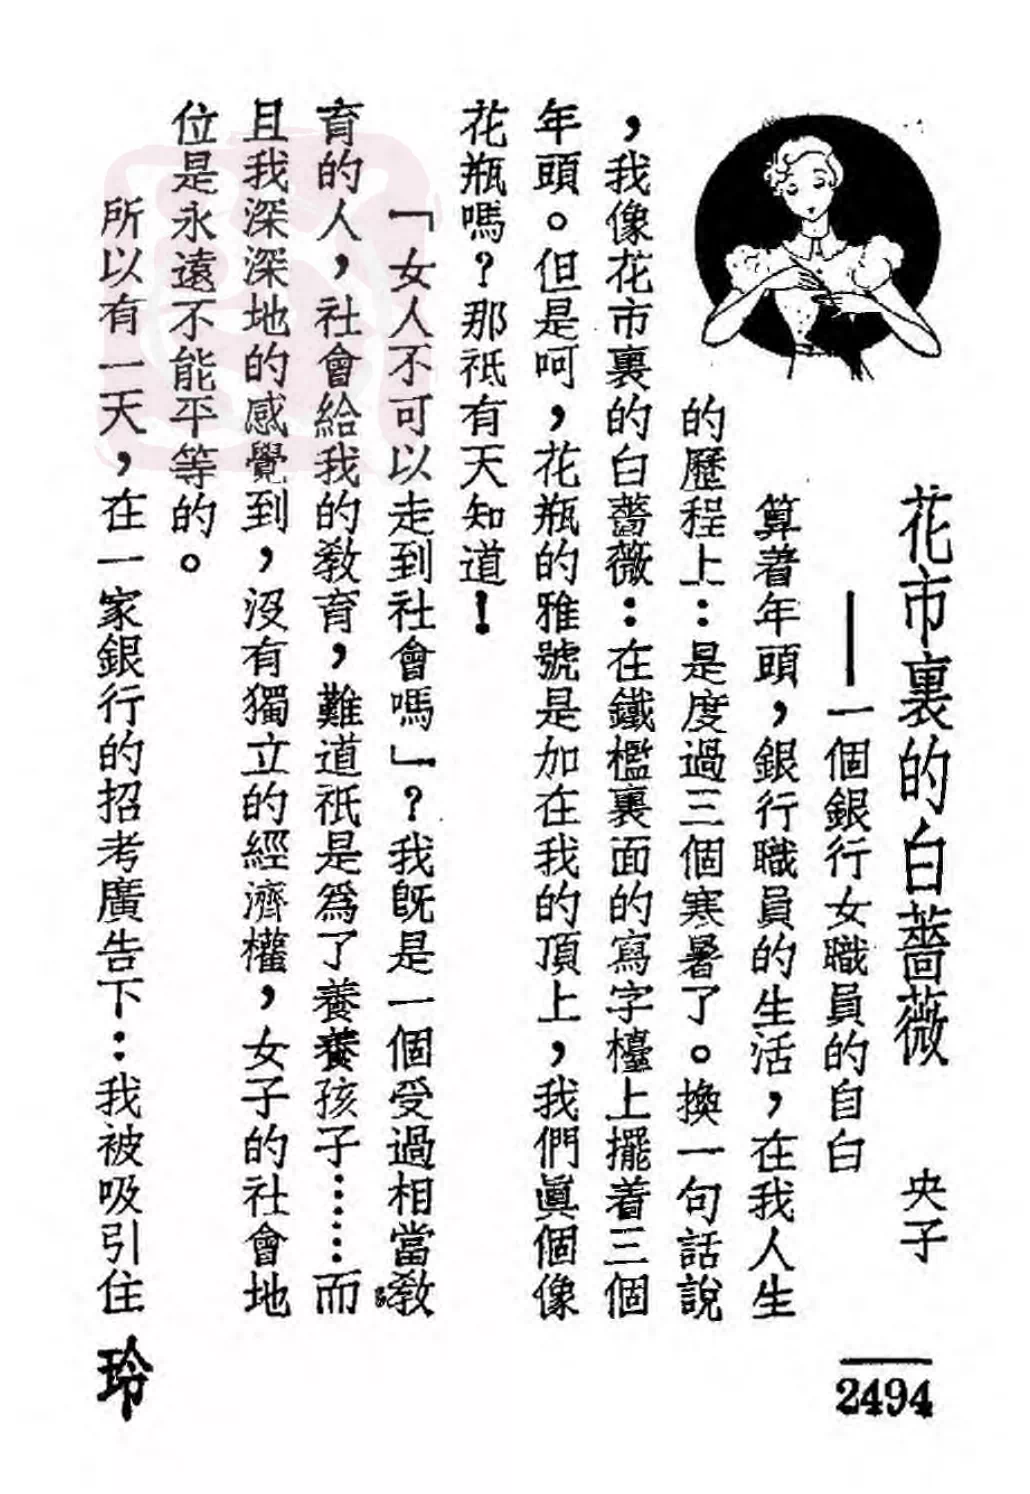 花市裏的白薔薇 央子
——一個銀行女職員的自白
算着年頭，銀行職員的生活，在我人生
的歷程上：是度過三個寒暑了。換一句話說
，我像花市裏的白薔薇：在鐵檻裏面的寫字檯上擺着三個
年頭。但是呵，花瓶的雅號是加在我的頂上，我們眞個像
花瓶嗎？那祗有天知道！
「女人不可以走到社會嗎」？我旣是一個受過相當敎
育的人，社會給我的敎育，難道祇是爲了養養孩子……而
且我深深地的感覺到，沒有獨立的經濟權，女子的社會地
位是永遠不能平等的。
所以有一天，在一家銀行的招考廣告下：我被吸引住
玲
2494